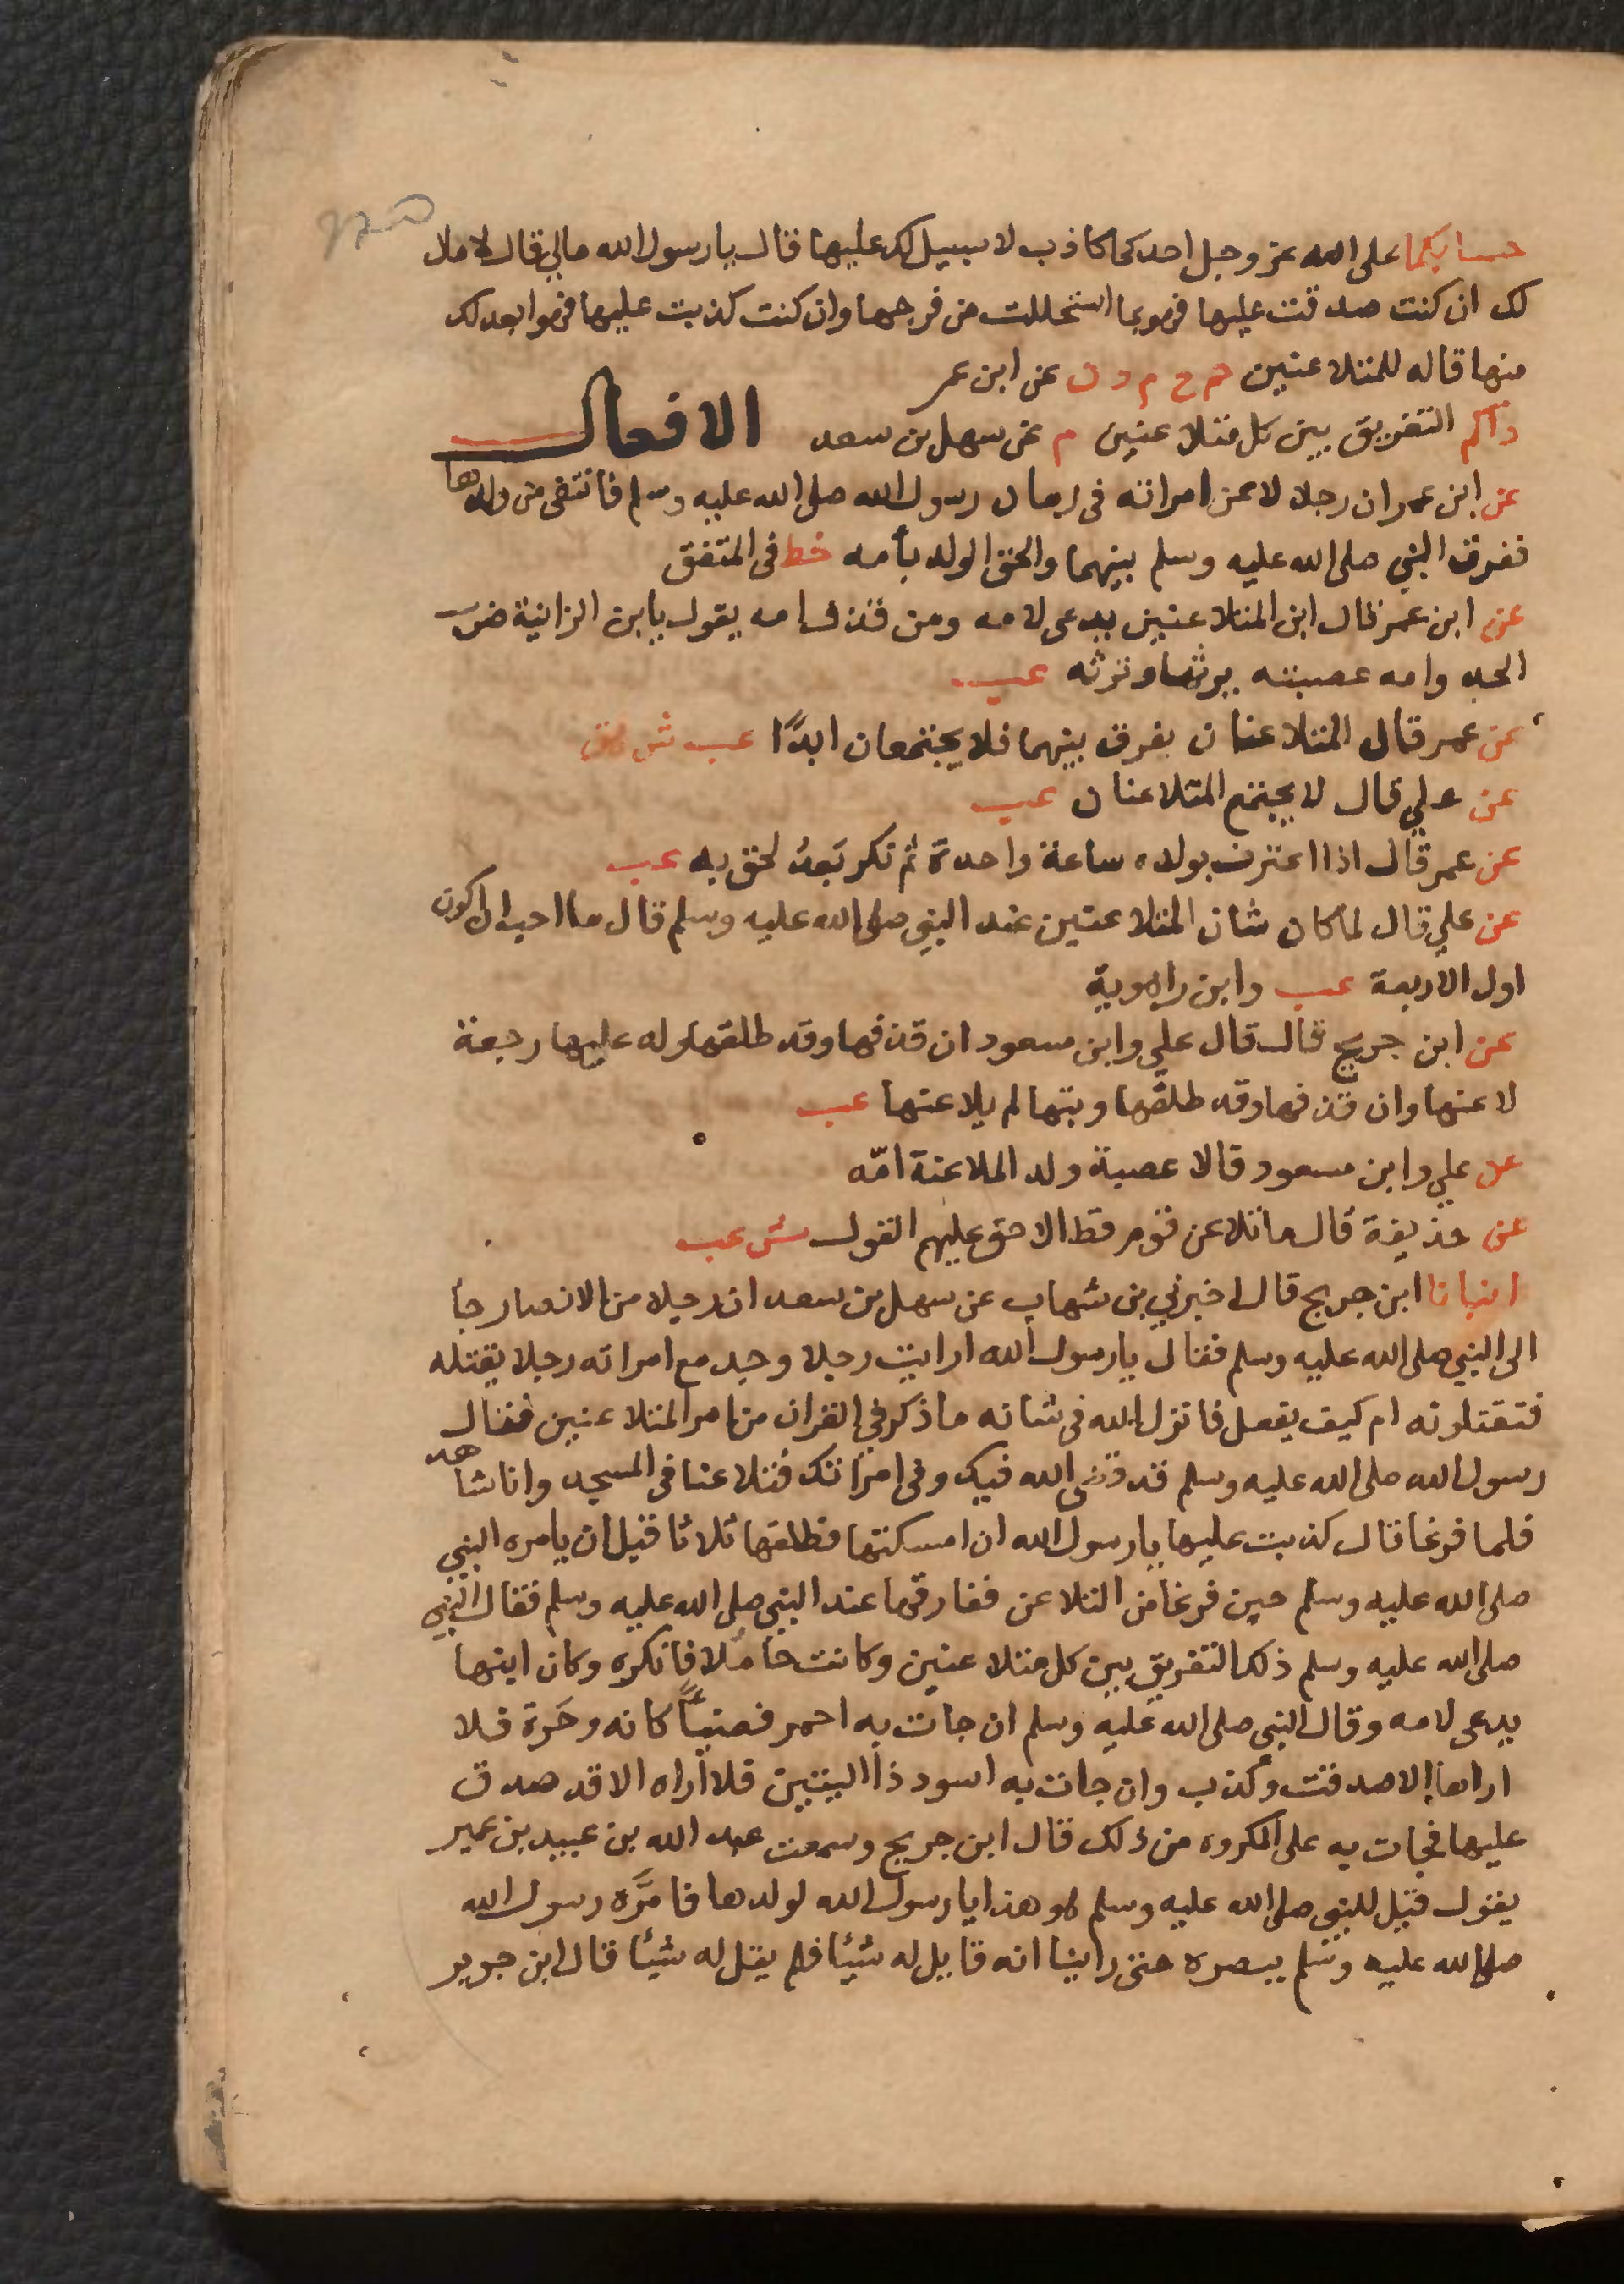 حسابكما على الله عز وجل احدكما كاذب لا سبيل لك عليها قال يا رسول الله مالي قال لا مال
لك ان كنت صدقت عليها فهو بما استحللت من فرجها وان كنت كذبت عليها فهو ابعد لك
منها قاله للمتلاعنين حم خ م د ن عن ابن عمر
ذاكم التفريق بين كل متلاعنين م عن سهل بن سعد الافعال
عن ابن عمر ان رجلا لاعن امراته في زمان رسول الله صلى الله عليه وسلم فانتفى من ولدها
ففرق النبي صلى الله عليه وسلم بينهما والحق الولد بأمه خط في المتفق
عن ابن عمر قال ابن المتلاعنين يدعى لامه ومن قذف امه يقول يا ابن الزانية ضرب
الحد وامه عصبته يرثها وترثه عب
عن عمر قال المتلاعنان يفرق بينهما فلا يجتمعان ابدًا عب ش هق
عن علي قال لا يجتمع المتلاعنان عب
عن عمر قال اذا اعترف بولده ساعة واحدة ثم نكر بَعدُ لحق به عب
عن علي قال لما كان شان المتلاعنين عند النبي صلى الله عليه وسلم قال ما احب ان اكون
اول الاربعة عب وابن راهوية
عن ابن جريج قال قال علي وابن مسعود ان قذفها وقد طلقها وله عليها رجعة
لاعنها وان قذفها وقد طلقها وبتها لم يلاعنها عب
عن علي وابن مسعود قالا عصبة ولد الملاعنة امّه
عن حذيفة قال ما تلاعن قوم قط الا حق عليهم القول ش عب
انبانا ابن جريج قال اخبرني بن شهاب عن سهل بن سعد ان رجلا من الانصار جأ
الى النبي صلى الله عليه وسلم فقال يا رسول الله ارايت رجلا وجد مع امراته رجلا يقتله
فتقتلونه ام كيف يفعل فانزل الله في شانه ما ذكر في القران من امر المتلاعنين فقال
رسول الله صلى الله عليه وسلم قد قضى الله فيك وفي امراتك فتلاعنا في المسجد وانا شاهد
فلما فرغا قال كذبت عليها يا رسول الله ان امسكتها فطلقها ثلاثا قبل ان يامره النبي
صلى الله عليه وسلم حين فرغا من التلاعن ففارقها عند النبي صلى الله عليه وسلم فقال النبي
صلى الله عليه وسلم ذلك التفريق بين كل متلاعنين وكانت حاملا فانكره وكان ابنها
يدعى لامه وقال النبي صلى الله عليه وسلم ان جات به احمر قصيًا كانه وحَرة فلا
اراها الا صدقت وكذب وان جات به اسود ذا اليتين فلا أراه الا قد صدق
عليها فجات به على المكروه من ذلك قال ابن جريج وسمعت عبد الله بن عبيد بن عمير
يقول قيل للنبي صلى الله عليه وسلم هو هذا يا رسول الله لولدها فامَرَّه رسول الله
صلى الله عليه وسلم ببصره حتى راينا انه قايل له شيئًا فلم يقل له شيئًا قال ابن جرير